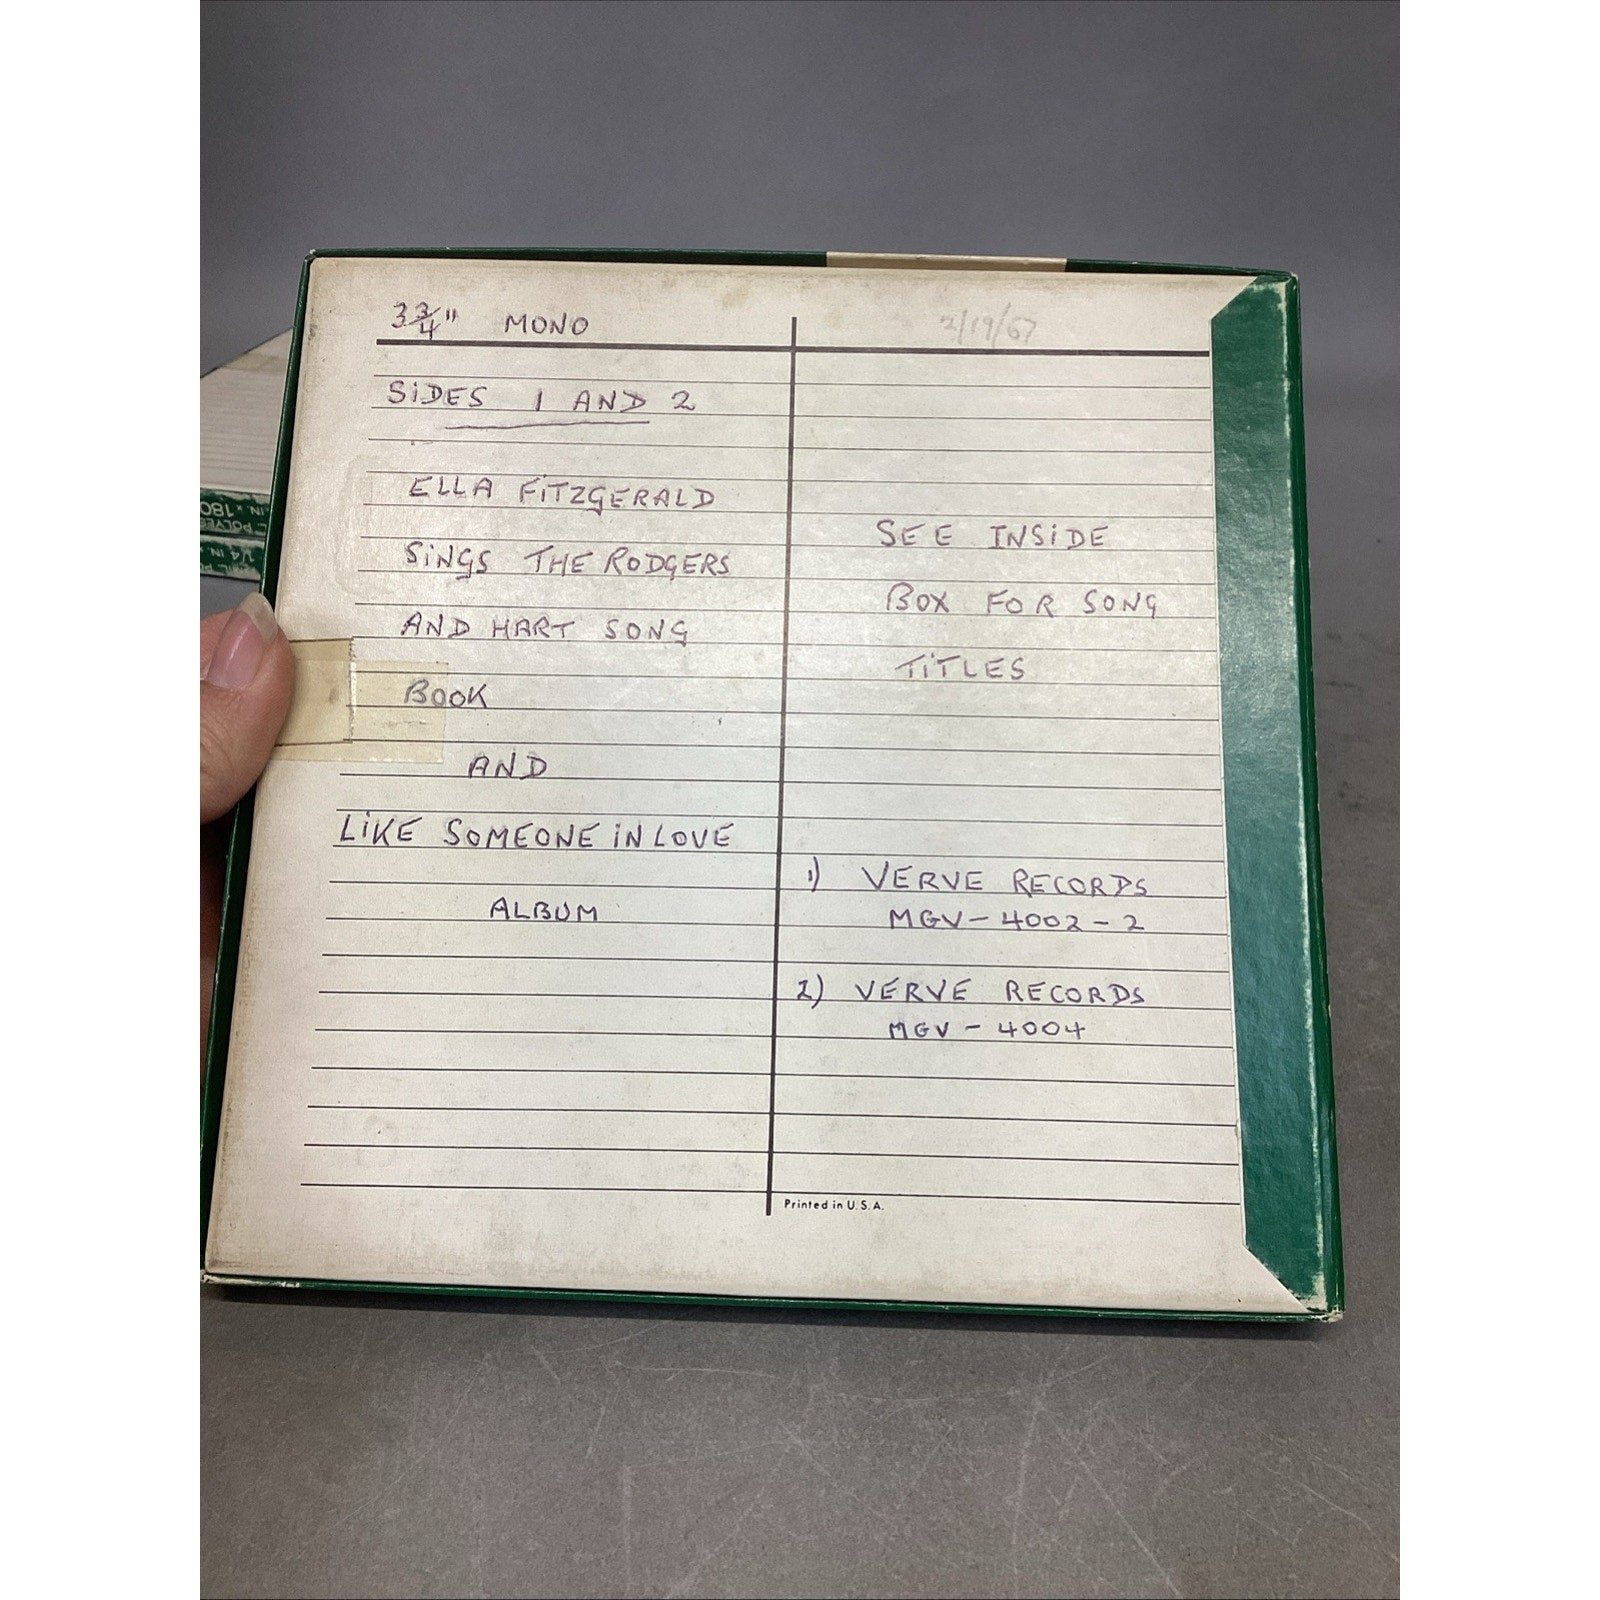 3 3/4" MONO
2/19/67
SIDES 1 AND 2
ELLA FITZGERALD
SINGS THE RODGERS
AND HART SONG
BOOK
AND
LIKE SOMEONE IN LOVE
ALBUM
SEE INSIDE
BOX FOR SONG
TITLES
1) VERVE RECORDS
MGV-4002-2
2) VERVE RECORDS
MGV-4004
Printed in U.S.A.